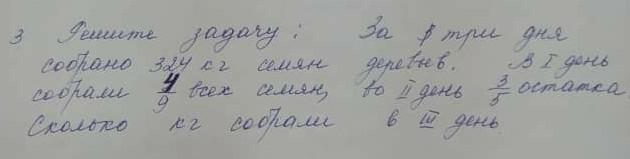 3 Решите задачу: За три дня
собрано 324 кг семян деревьев. В I день
собрали 4/9 всех семян, во II день 3/5 остатка
Сколько кг собрали в III день